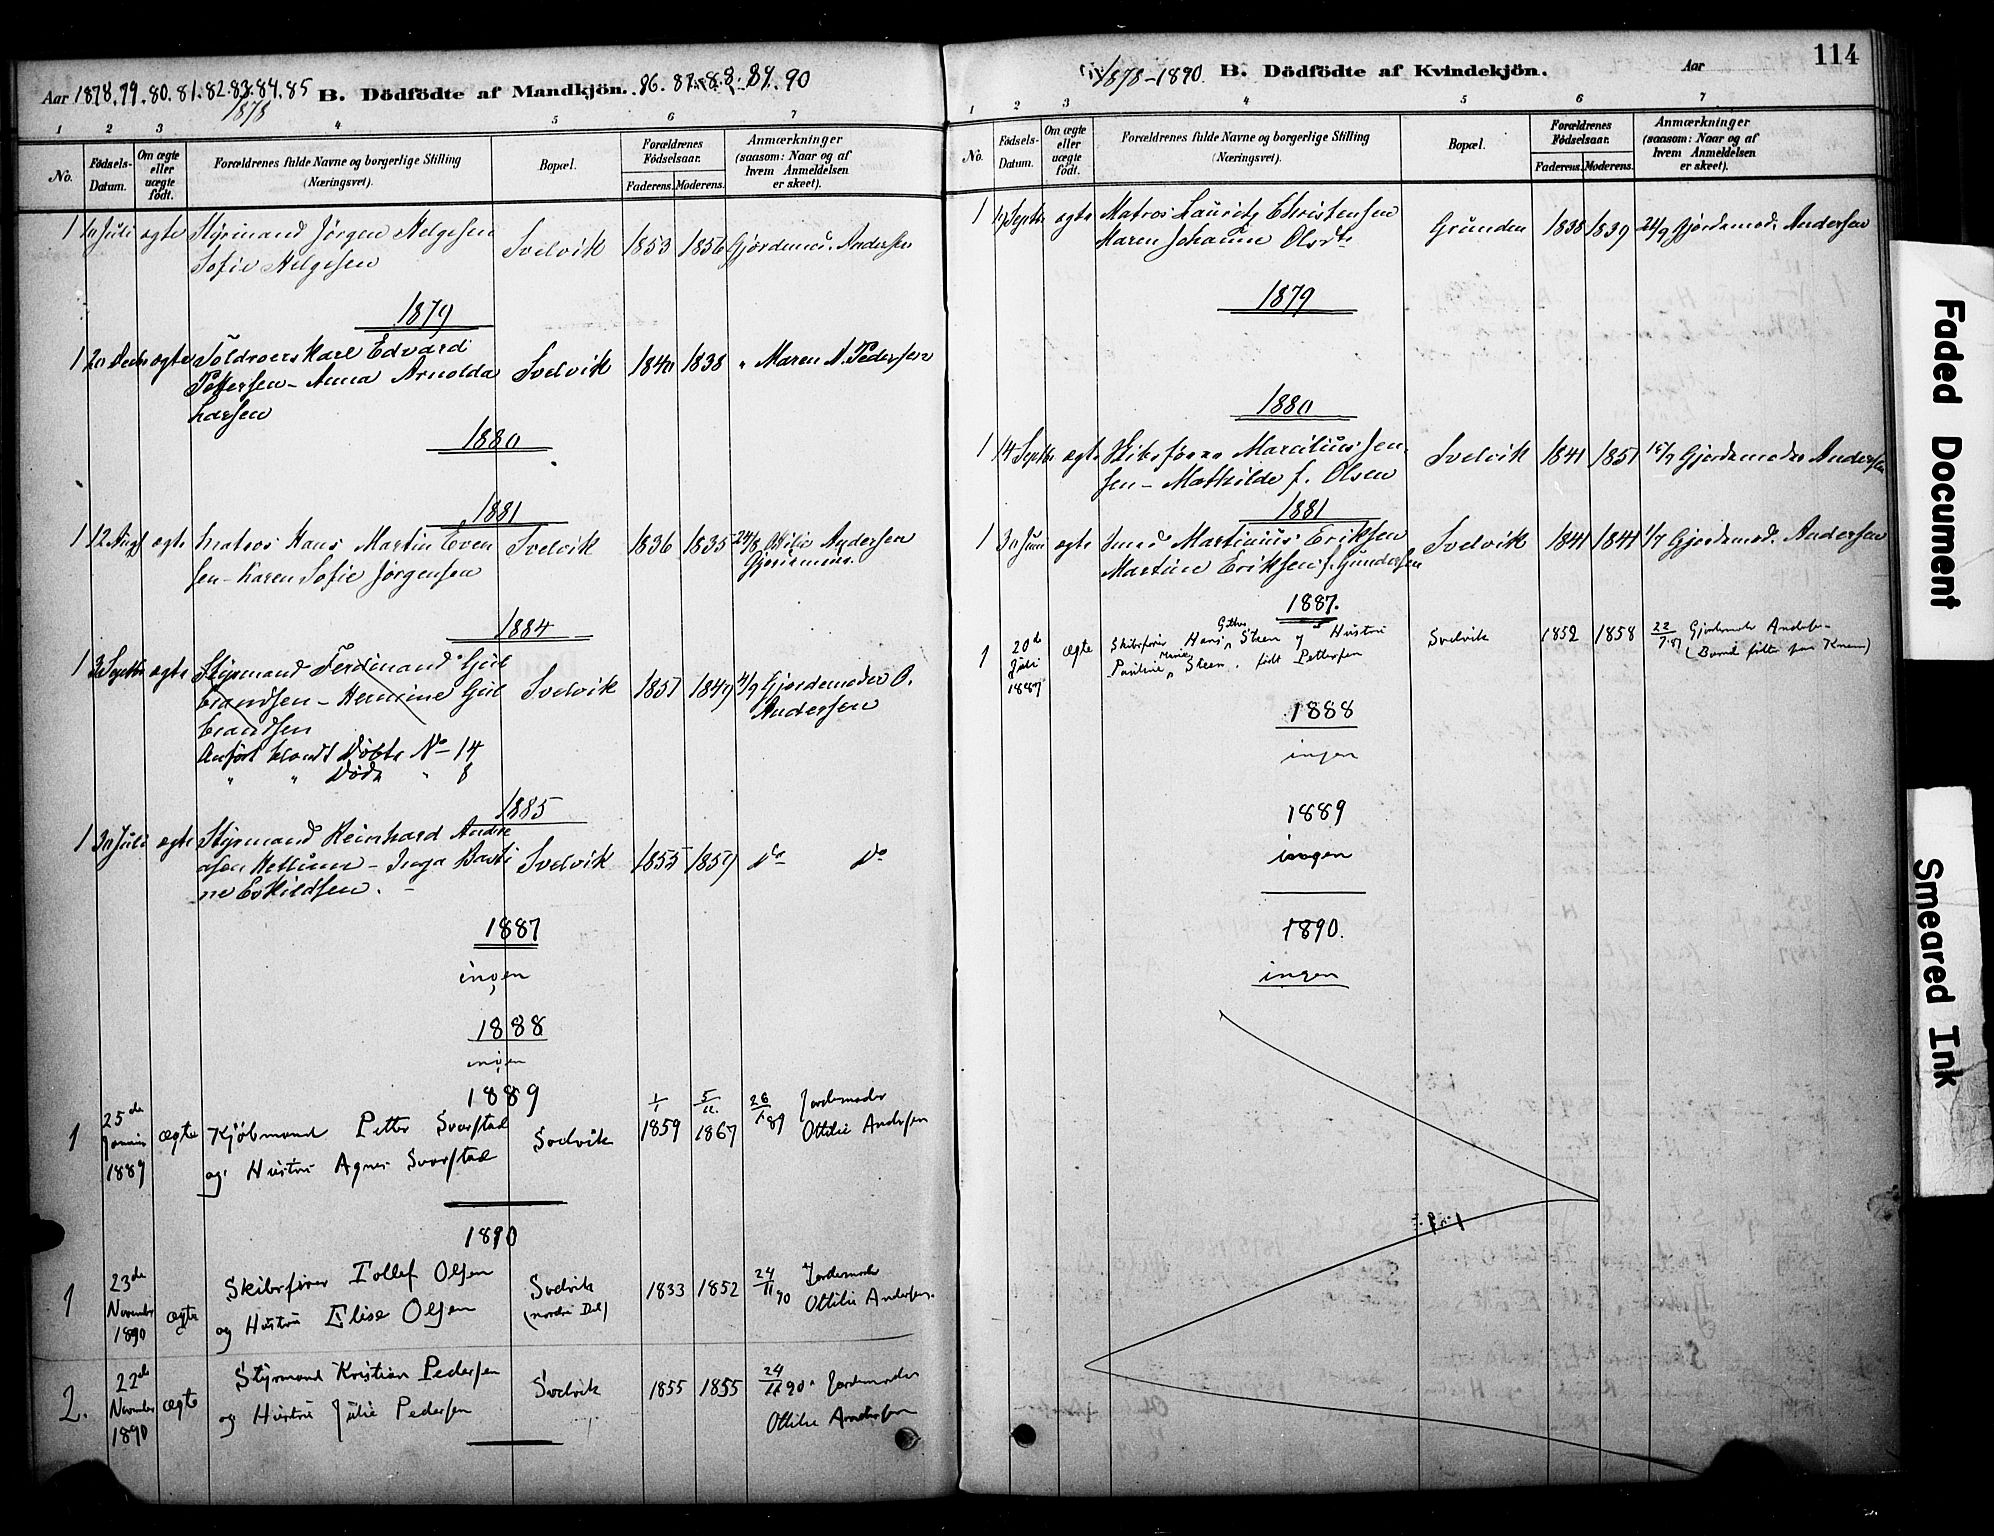 Aar 1878. 79. 80. 81. 82. 83. 84. 85 B. Dödfödte af Mandkjön. 86. 87. 88. 89. 90
1878
1 2 3 4 5 6 7
No.
Födsels-Datum.
Om ægte eller uægte födt.
Forældrenes fulde Navne og borgerlige Stilling (Næringsvei).
Bopæl.
Forældrenes Födselsaar.
Faderens. Moderens.
Anmærkninger (saasom: Naar og af hvem Anmeldelsen er skeet).
1 Juli ægte Styrmand Jörgen Helgesen Svelvik 1853 1856 Gjordemod. Andersen
Sofie Helgesen
1879
1 20 Decbr ægte Toldroers Karl Edvard
Pettersen - Anna Arnolda Svelvik 1840 1838 " Maren N. Pedersen
Larsen
1880
1881
1 12 Augt ægte Matros Hans Martin Even Svelvik 1836 1835 24/8 Ottilie Andersen
sen - Karen Sofie Jörgensen Gjordemoder.
1884
1 3 Septbr ægte Styrmand Ferdinand Gul
brandsen - Hermine Gul Svelvik 1857 1849 4/9 Gjordemoder O.
brandsen Andersen
Anført blandt Døbte No 14
" " Døde " 8
1885
1 30 Juli ægte Styrmand Reinhard Andre
asen Hellum - Inga Bast Svelvik 1855 1857 Do Do
ne Eskildsen.
1887
ingen
1888
ingen
1889
1 25de Januar 1889 ægte Kjöbmand Petter Svarstad Svelvik 1/1 1859 5/11. 1867 26/1 89 Jordemoder
og Hustru Agnes Svarstad Ottilie Andersen
1890
1 23de November 1890 ægte Skibsfører Tollef Olsen Svelvik 1833 1852 24/11 90 Jordemoder
og Hustru Elise Olsen (nordre Del) Ottilie Andersen.
2. 22de November 1890 ægte Styrmand Kristian Pedersen Svelvik 1855 1855 24/11 90. Jordemoder
og Hustru Julie Pedersen Ottilie Andersen
1878-1890. B. Dödfödte af Kvindekjön. Aar 114
1 2 3 4 5 6 7
No.
Födsels-Datum.
Om ægte eller uægte födt.
Forældrenes fulde Navne og borgerlige Stilling (Næringsvei).
Bopæl.
Forældrenes Födselsaar.
Faderens. Moderens.
Anmærkninger (saasom: Naar og af hvem Anmeldelsen er skeet).
1 Septbr ægte Matros Lauritz Christensen Grunden 1838 1839 24/9 Gjordemod. Andersen
Maren Johanne Olsdtr
1879
1880
1 14 Septbr ægte Skibsförer Marcilius Jen Svelvik 1841 1851 15/9 Gjordemoder Andersen
sen - Mathilde f. Olsen
1881
1 30 Juni ægte Smed Martinius Eriksen Svelvik 1841 1841 1/7 Gjordemod. Andersen
Martine Eriksen f. Gundersen
1887.
1 20de Juli 1887 ægte Skibsfører Hans Steen og Hustru Svelvik 1852 1858 22/7.87 Gjordemoder Andersen
Pauline Marie Steen. født Pettersen
1888
ingen
1889
ingen
1890.
ingen
Faded Document
Smeared Ink